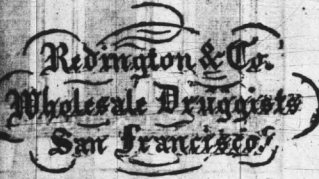 Redington & Co.
Wholesale Druggists
San Francisco.